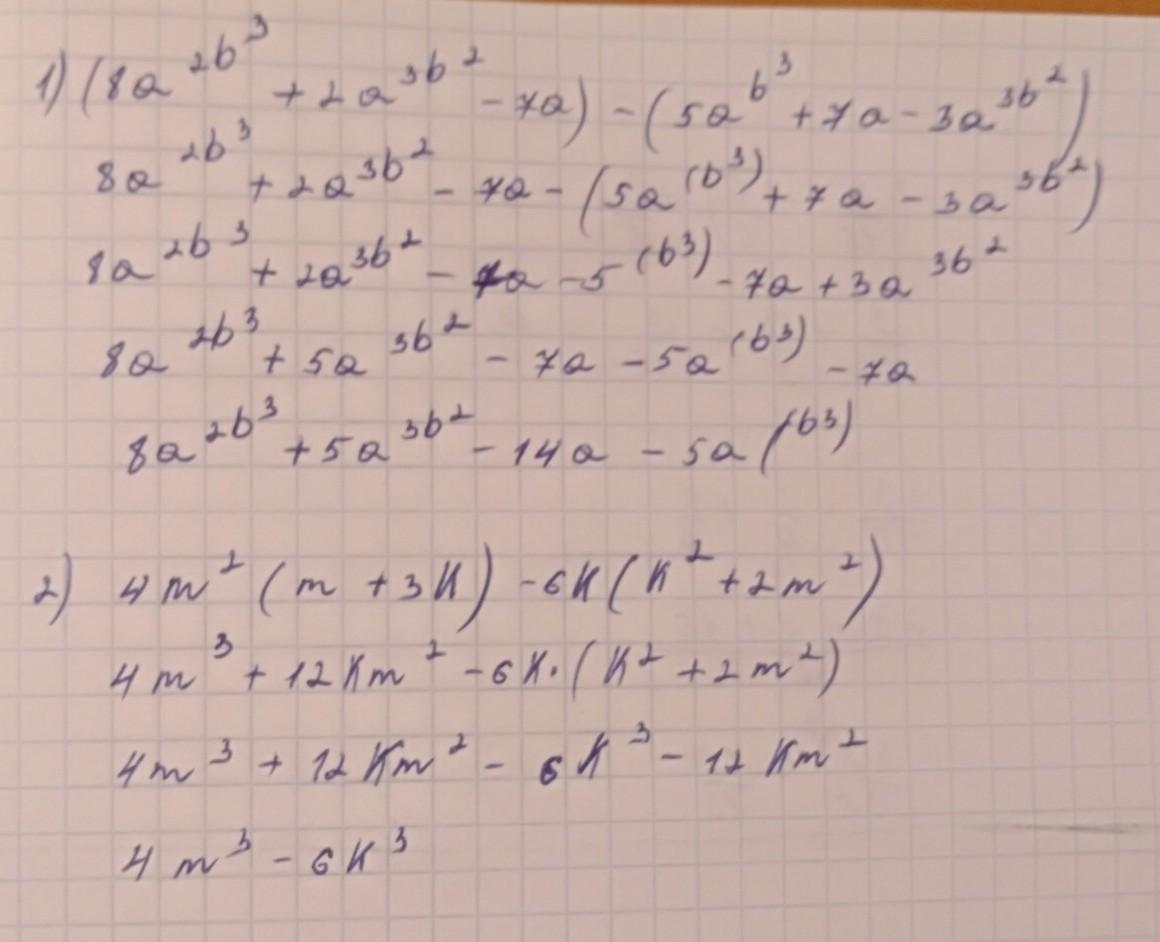 1) (8a^{2b^3} + 2a^{3b^2} - 7a) - (5a^{b^3} + 7a - 3a^{3b^2})
8a^{2b^3} + 2a^{3b^2} - 7a - (5a^{(b^3)} + 7a - 3a^{3b^2})
8a^{2b^3} + 2a^{3b^2} - 7a - 5^{(b^3)} - 7a + 3a^{3b^2}
8a^{2b^3} + 5a^{3b^2} - 7a - 5a^{(b^3)} - 7a
8a^{2b^3} + 5a^{3b^2} - 14a - 5a^{(b^3)}
2) 4m^2 (m + 3K) - 6K (K^2 + 2m^2)
4m^3 + 12Km^2 - 6K · (K^2 + 2m^2)
4m^3 + 12Km^2 - 6K^3 - 12Km^2
4m^3 - 6K^3